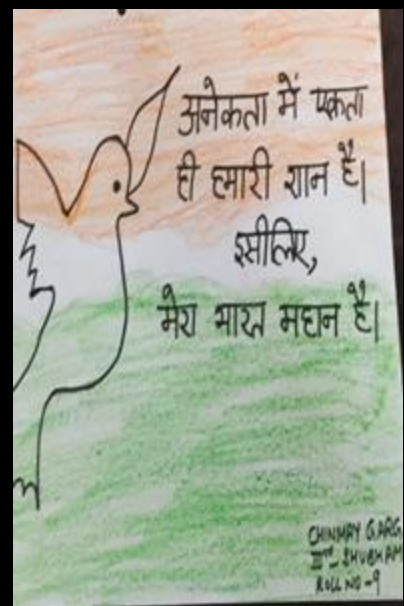 अनेकता में एकता
ही हमारी शान है।
इसीलिए,
मेरा भारत महान है।
CHINMAY GARG
III - SHUBHAM
ROLL NO - 9